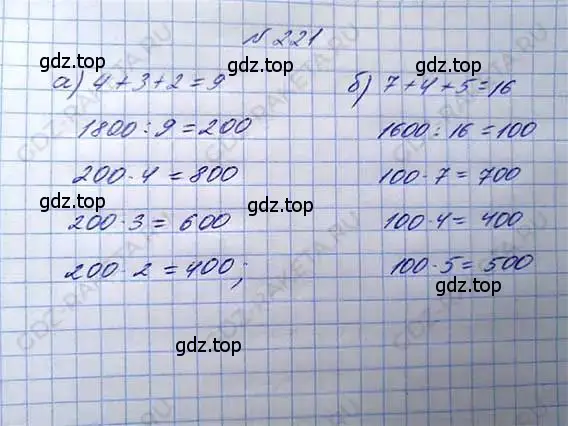 № 221
а) 4 + 3 + 2 = 9
1800 : 9 = 200
200 · 4 = 800
200 · 3 = 600
200 · 2 = 400;
б) 7 + 4 + 5 = 16
1600 : 16 = 100
100 · 7 = 700
100 · 4 = 400
100 · 5 = 500
gdz.top
gdz.top
gdz.top
gdz.top
gdz.top
gdz.top
gdz.top
GDZ-RAKETA.RU
GDZ-RAKETA.RU
GDZ-RAKETA.RU
GDZ-RAKETA.RU